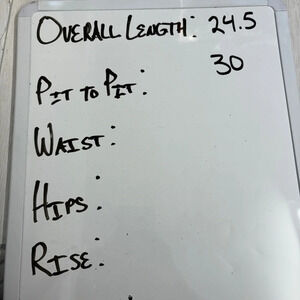 OVERALL LENGTH: 24.5
PIT TO PIT: 30
WAIST:
HIPS:
RISE: